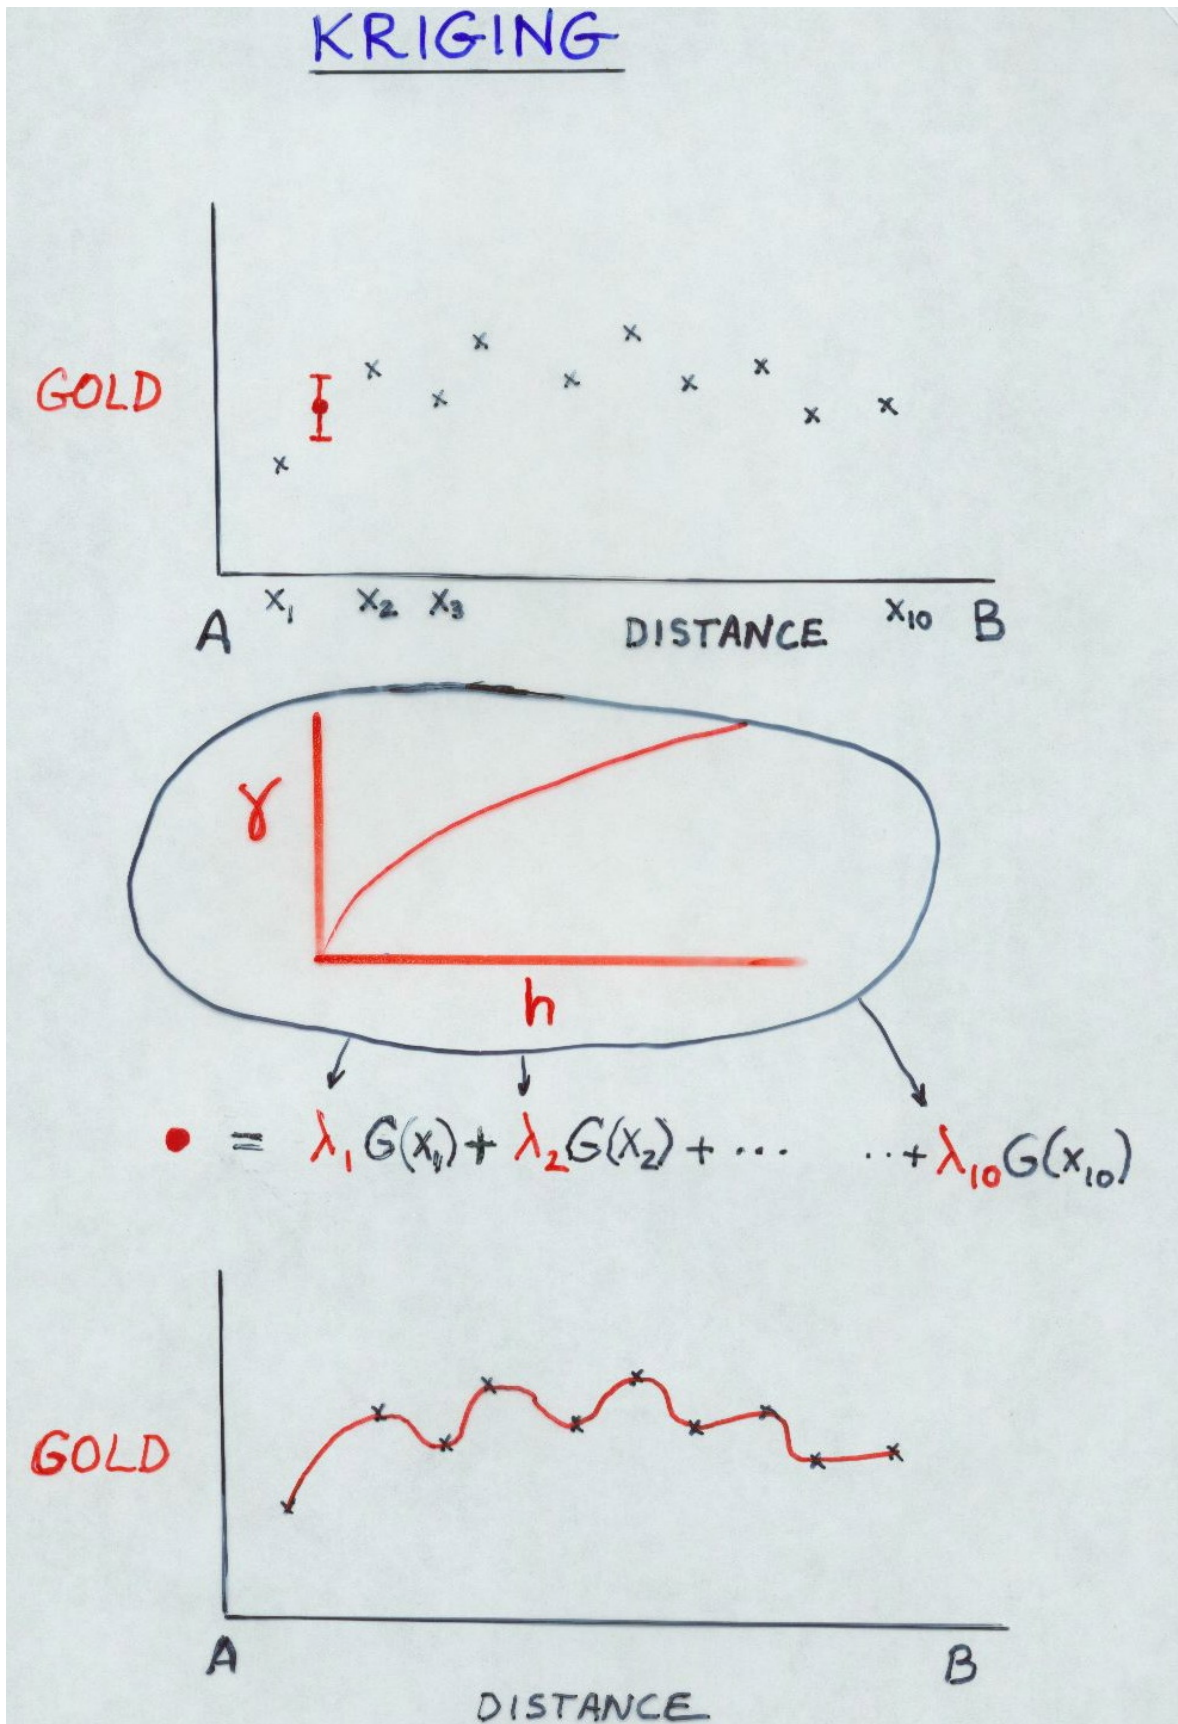 KRIGING
GOLD
x₁ x₂ x₃ x₁₀
A DISTANCE B
γ
h
= λ₁G(x₁) + λ₂G(x₂) + ... ..+ λ₁₀G(x₁₀)
GOLD
A B
DISTANCE